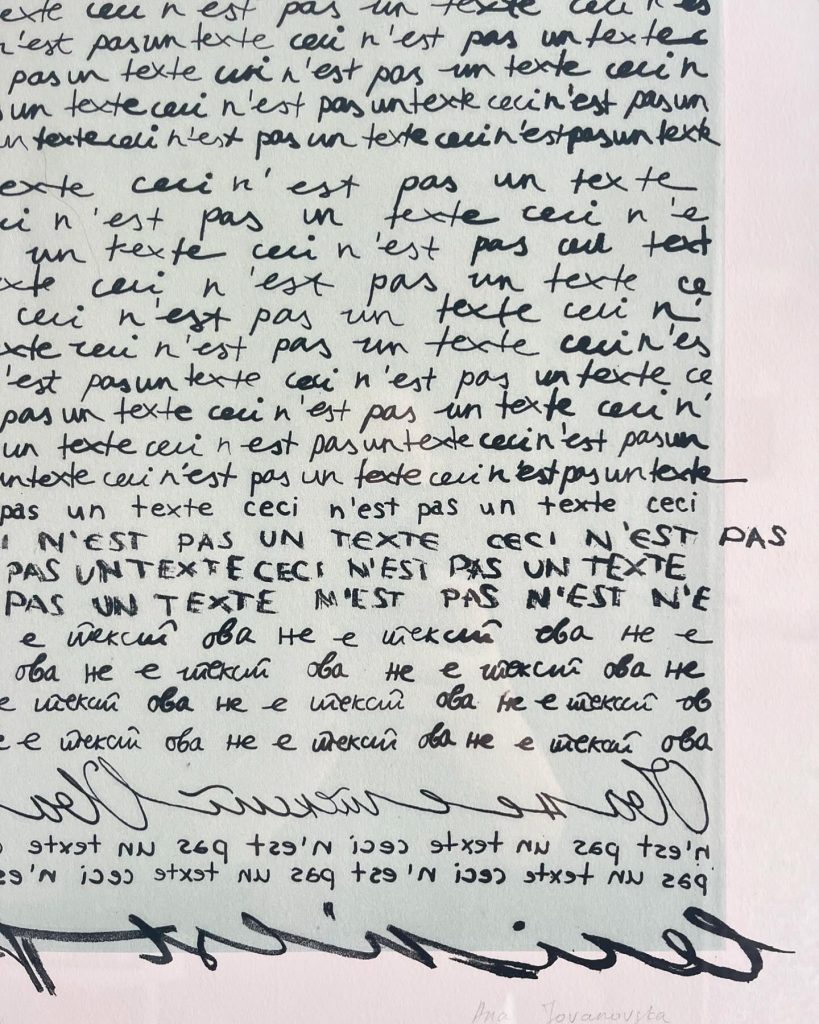 exte ceci n'est pas un texte ceci n'es
n'est pas un texte ceci n'est pas un texte c
pas un texte ceci n'est pas un texte ceci n
un texte ceci n'est pas un texte ceci n'est pas un
un texte ceci n'est pas un texte ceci n'est pas un texte
exte ceci n'est pas un texte
ci n'est pas un texte ceci n'e
un texte ceci n'est pas un text
xte ceci n'est pas un texte ce
ceci n'est pas un texte ceci n'
xte ceci n'est pas un texte ceci n'es
'est pas un texte ceci n'est pas un texte ce
pas un texte ceci n'est pas un texte ceci n'
un texte ceci n'est pas un texte ceci n'est pas un
un texte ceci n'est pas un texte ceci n'est pas un texte
pas un texte ceci n'est pas un texte ceci
I N'EST PAS UN TEXTE CECI N'EST PAS
PAS UN TEXTE CECI N'EST PAS UN TEXTE
PAS UN TEXTE N'EST PAS N'EST N'E
е текст ова не е текст ова не е
ова не е текст ова не е текст ова не
е текст ова не е текст ова не е текст ов
е е текст ова не е текст ова не е текст ова
Ова не е текст Ова
n'est pas un texte ceci n'est pas un texte
pas un texte ceci n'est pas un texte ceci n'es
Ceci n'est p
Ana Jovanovska